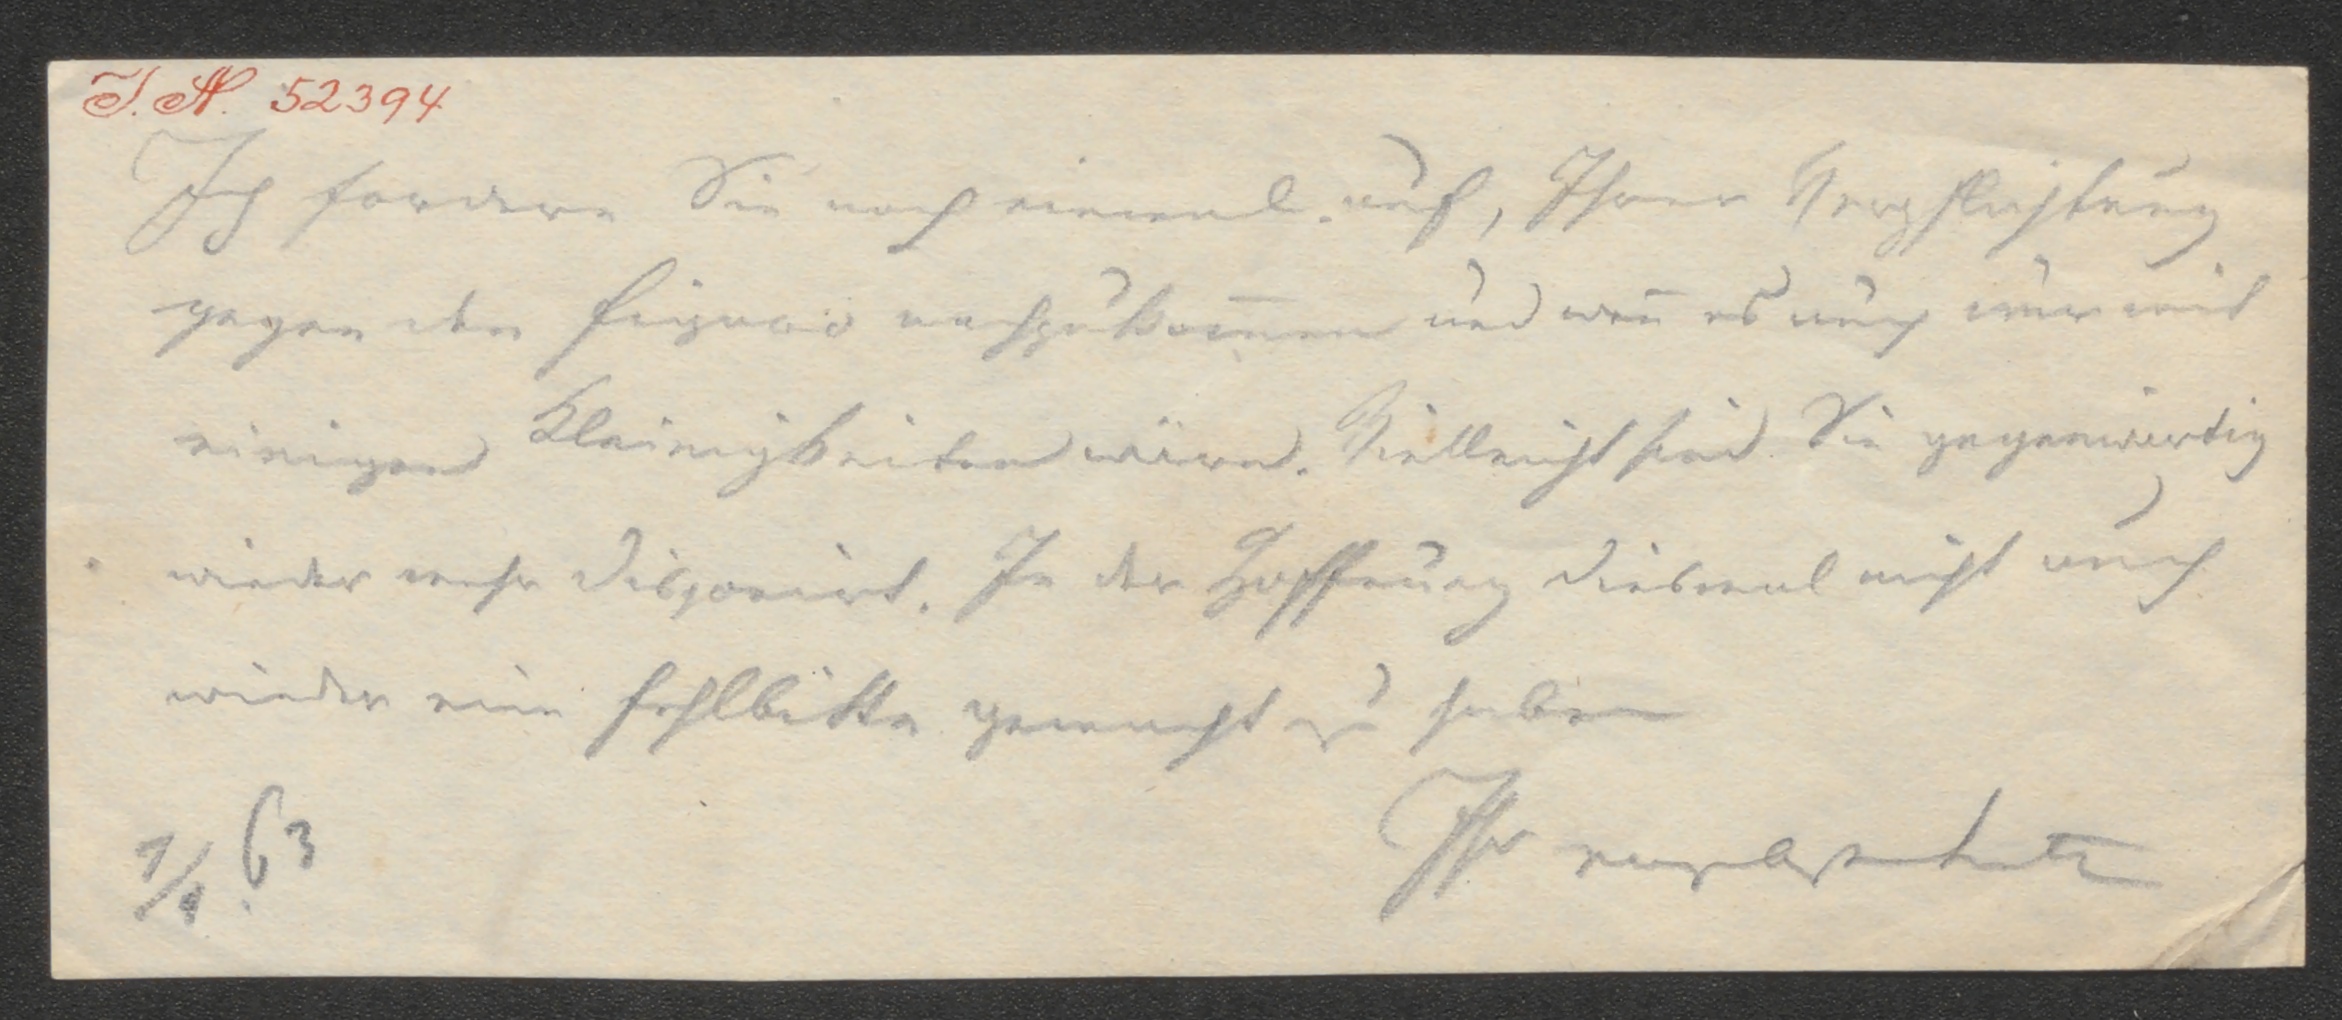 J. N. 52394
Ich fordere Sie noch einmal auf, Ihrer Verpflichtung
gegen den Figaro nachzukom̅en und wen̅ es auch nur mit
einigen Kleinigkeiten wäre. Vielleicht sind Sie gegenwärtig
wieder mehr disponirt. In der Hoffnung diesmal nicht auch
wieder eine Fehlbitte gemacht zu haben
Ihr
63